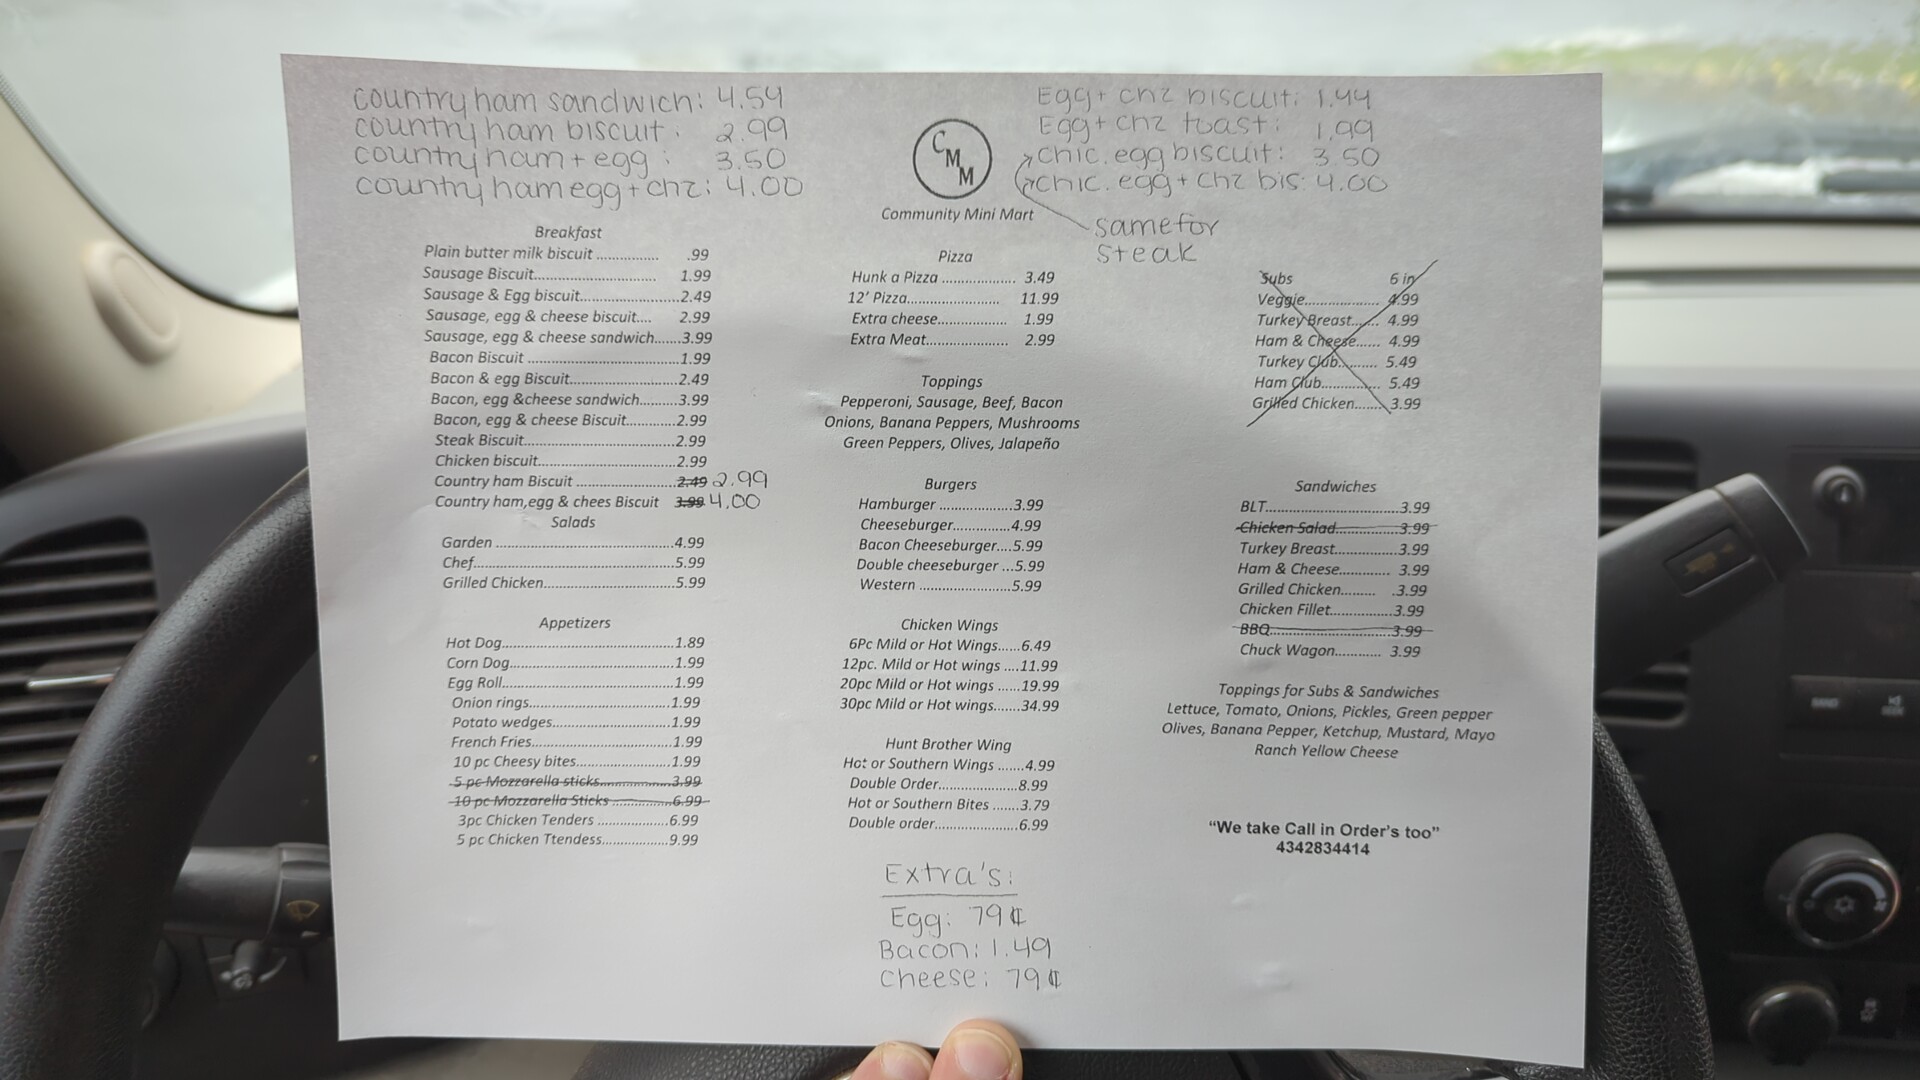 country ham sandwich: 4.54
country ham biscuit: 2.99
country ham + egg: 3.50
country ham egg + chz: 4.00
C
M
M
Community Mini Mart
Egg + chz biscuit: 1.44
Egg + chz toast: 1.99
chic. egg biscuit: 3.50
chic. egg + chz bis: 4.00
same for
steak
Breakfast
Plain butter milk biscuit ............... .99
Sausage Biscuit............................. 1.99
Sausage & Egg biscuit.......................2.49
Sausage, egg & cheese biscuit.... 2.99
Sausage, egg & cheese sandwich.......3.99
Bacon Biscuit ....................................1.99
Bacon & egg Biscuit..........................2.49
Bacon, egg &cheese sandwich..........3.99
Bacon, egg & cheese Biscuit.............2.99
Steak Biscuit....................................2.99
Chicken biscuit.................................2.99
Country ham Biscuit ........................2.49 2.99
Country ham,egg & chees Biscuit 3.99 4.00
Salads
Garden ...........................................4.99
Chef................................................5.99
Grilled Chicken................................5.99
Appetizers
Hot Dog.........................................1.89
Corn Dog.......................................1.99
Egg Roll.........................................1.99
Onion rings..................................1.99
Potato wedges.............................1.99
French Fries..................................1.99
10 pc Cheesy bites.......................1.99
5 pc Mozzarella sticks..................3.99
10 pc Mozzarella Sticks ...............6.99
3pc Chicken Tenders ..................6.99
5 pc Chicken Ttendess.................9.99
Pizza
Hunk a Pizza .................... 3.49
12' Pizza......................... 11.99
Extra cheese................... 1.99
Extra Meat...................... 2.99
Toppings
Pepperoni, Sausage, Beef, Bacon
Onions, Banana Peppers, Mushrooms
Green Peppers, Olives, Jalapeño
Burgers
Hamburger ....................3.99
Cheeseburger................4.99
Bacon Cheeseburger....5.99
Double cheeseburger ...5.99
Western ........................5.99
Chicken Wings
6Pc Mild or Hot Wings......6.49
12pc. Mild or Hot wings ....11.99
20pc Mild or Hot wings ......19.99
30pc Mild or Hot wings.......34.99
Hunt Brother Wing
Hot or Southern Wings .......4.99
Double Order......................8.99
Hot or Southern Bites .......3.79
Double order.......................6.99
Extra's:
Egg: 79¢
Bacon: 1.49
Cheese: 79¢
Subs 6 in
Veggie.................... 4.99
Turkey Breast....... 4.99
Ham & Cheese...... 4.99
Turkey Club.......... 5.49
Ham Club............... 5.49
Grilled Chicken....... 3.99
Sandwiches
BLT..................................3.99
Chicken Salad................3.99
Turkey Breast................3.99
Ham & Cheese............. 3.99
Grilled Chicken......... .3.99
Chicken Fillet................3.99
BBQ...............................3.99
Chuck Wagon............ 3.99
Toppings for Subs & Sandwiches
Lettuce, Tomato, Onions, Pickles, Green pepper
Olives, Banana Pepper, Ketchup, Mustard, Mayo
Ranch Yellow Cheese
"We take Call in Order's too"
4342834414
BAND
SEEK